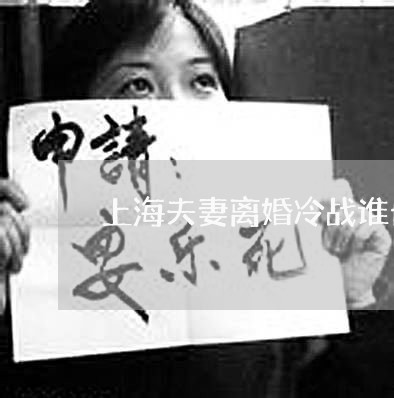 申請：
上海夫妻离婚冷战谁
安乐死